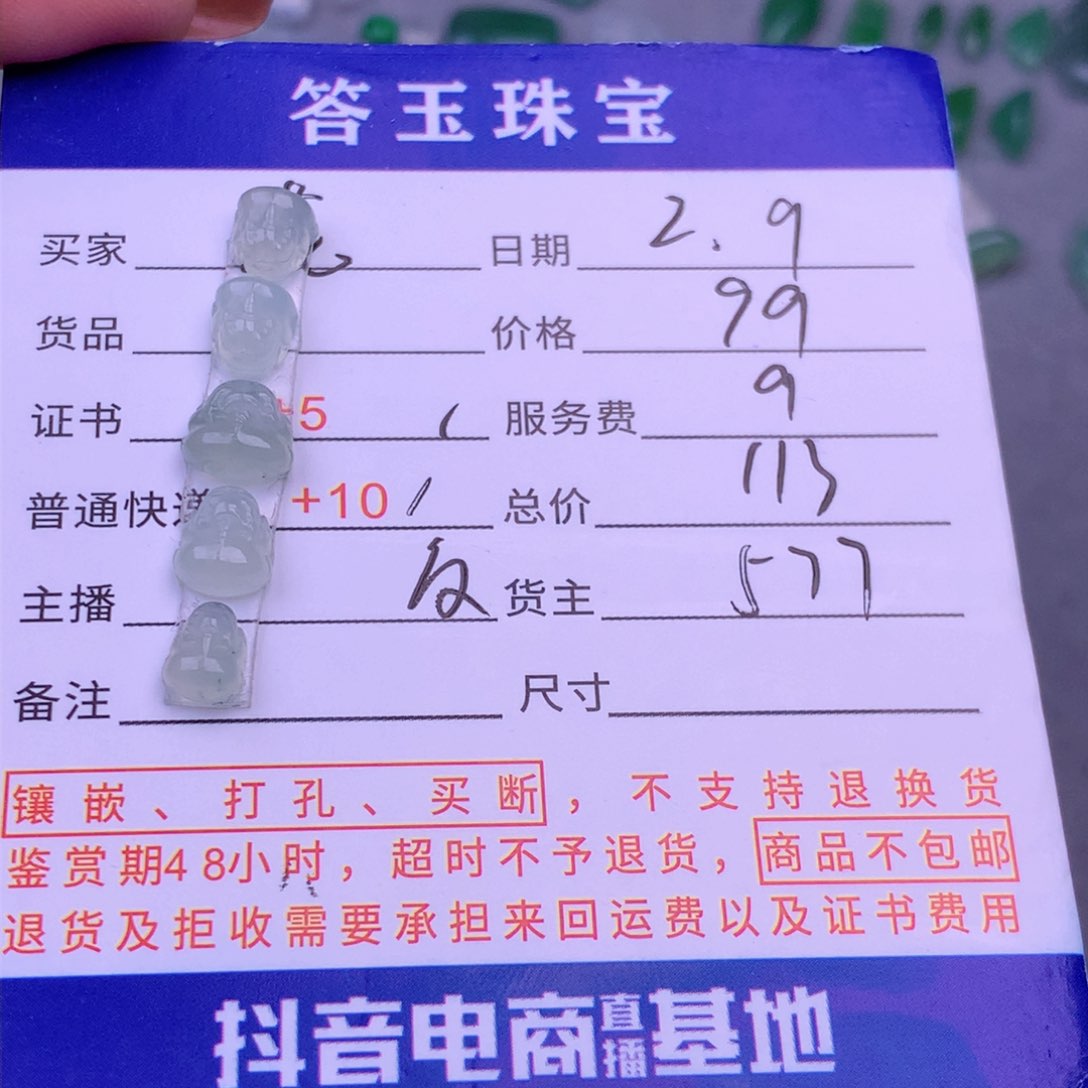 答玉珠宝
买家 日期 2.9
货品 价格 99
证书 +5 服务费 9
普通快递 +10 总价 113
主播 货主 577
备注 尺寸
镶嵌、打孔、买断，不支持退换货
鉴赏期48小时，超时不予退货，商品不包邮
退货及拒收需要承担来回运费以及证书费用
抖音电商直播基地